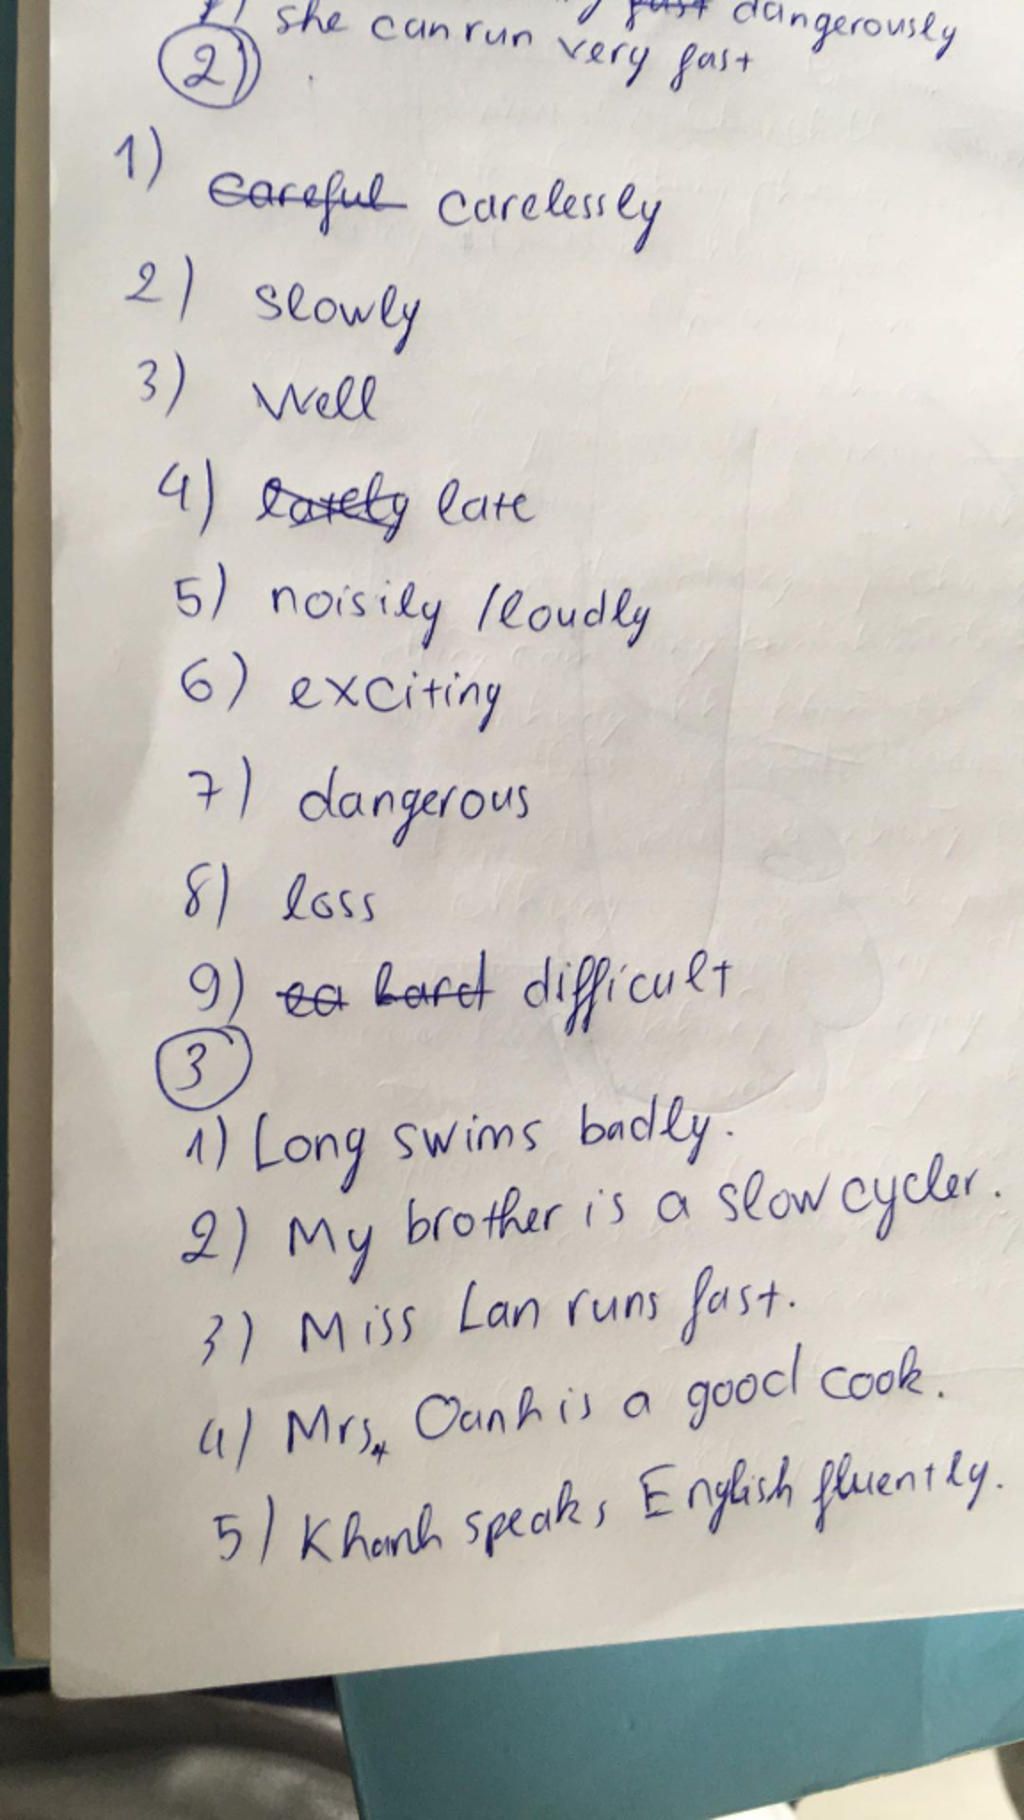 7) she can run very fast
fast dangerously
2)
1) careful carelessly
2) slowly
3) Well
4) lately late
5) noisily / loudly
6) exciting
7) dangerous
8) loss
9) ea hard difficult
3
1) Long swims badly.
2) My brother is a slow cycler.
3) Miss Lan runs fast.
4) Mrs. Oanh is a good cook.
5) Khanh speaks English fluently.